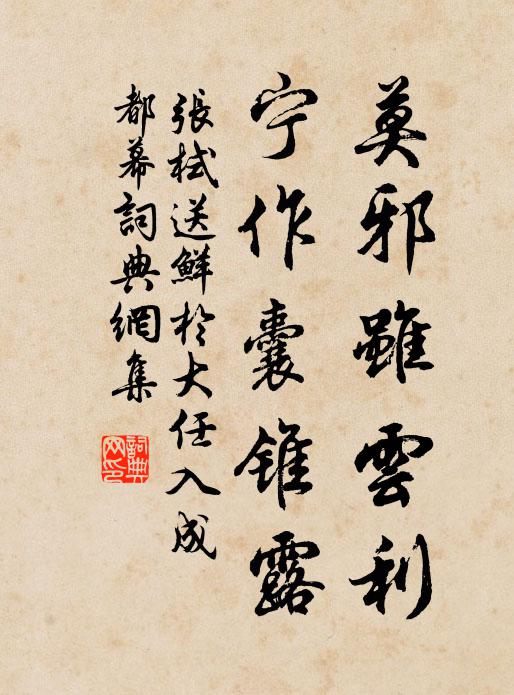 莫邪雖雲利
宁作囊錐露
張栻送鮮於大任入成
都幕詞典網集
詞典
网印